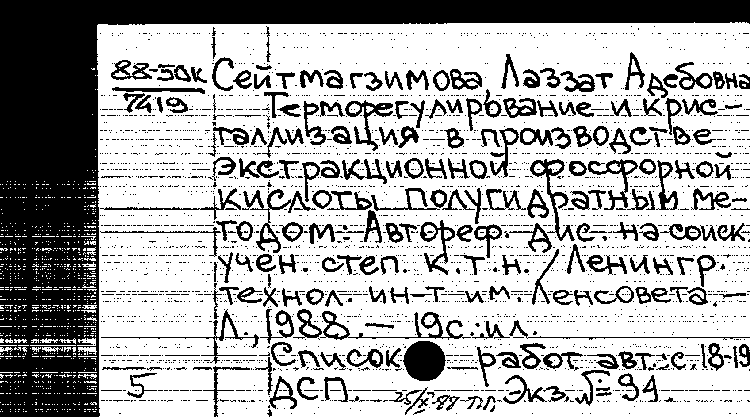 88-50к
7419
Сейтмагзимова, Лаззат Адебовна
Терморегулирование и крис-
таллизация в производстве
экстракционной фосфорной
кислоты полугидратным ме-
тодом: Автореф. дис. на соиск.
учен. степ. к.т.н. / Ленингр.
технол. ин-т им. Ленсовета. —
Л., 1988. — 19с.: ил.
Список работ авт.: с. 18-19
5
ДСП. Экз. № 94.